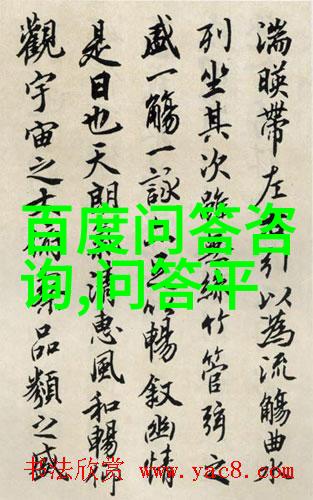 湍暎帶左引以為流觴曲水
列坐其次雖無絲竹管弦之
盛一觴一詠暢敘幽情
是日也天朗清惠風和暢仰
觀宇宙之大俯品類之盛
百度问答咨
询,问答平
书法欣赏 www.yac8.com